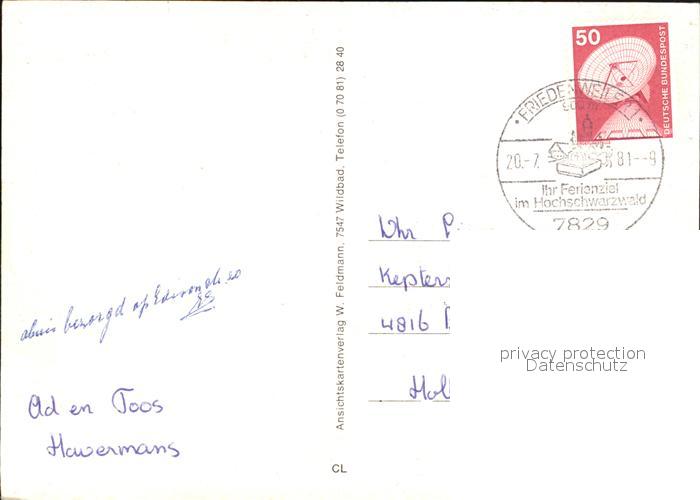 50
DEUTSCHE BUNDESPOST
FRIEDENWEILER 1
900 m
20.-7. 81--9
Ihr Ferienziel
im Hochschwarzwald
7829
Ansichtskartenverlag W. Feldmann, 7547 Wildbad, Telefon (0 70 81) 28 40
Whr P
Kepler
4816
Hol
abuis bezorgd op
Ad en Toos
Havermans
CL
privacy protection
Datenschutz